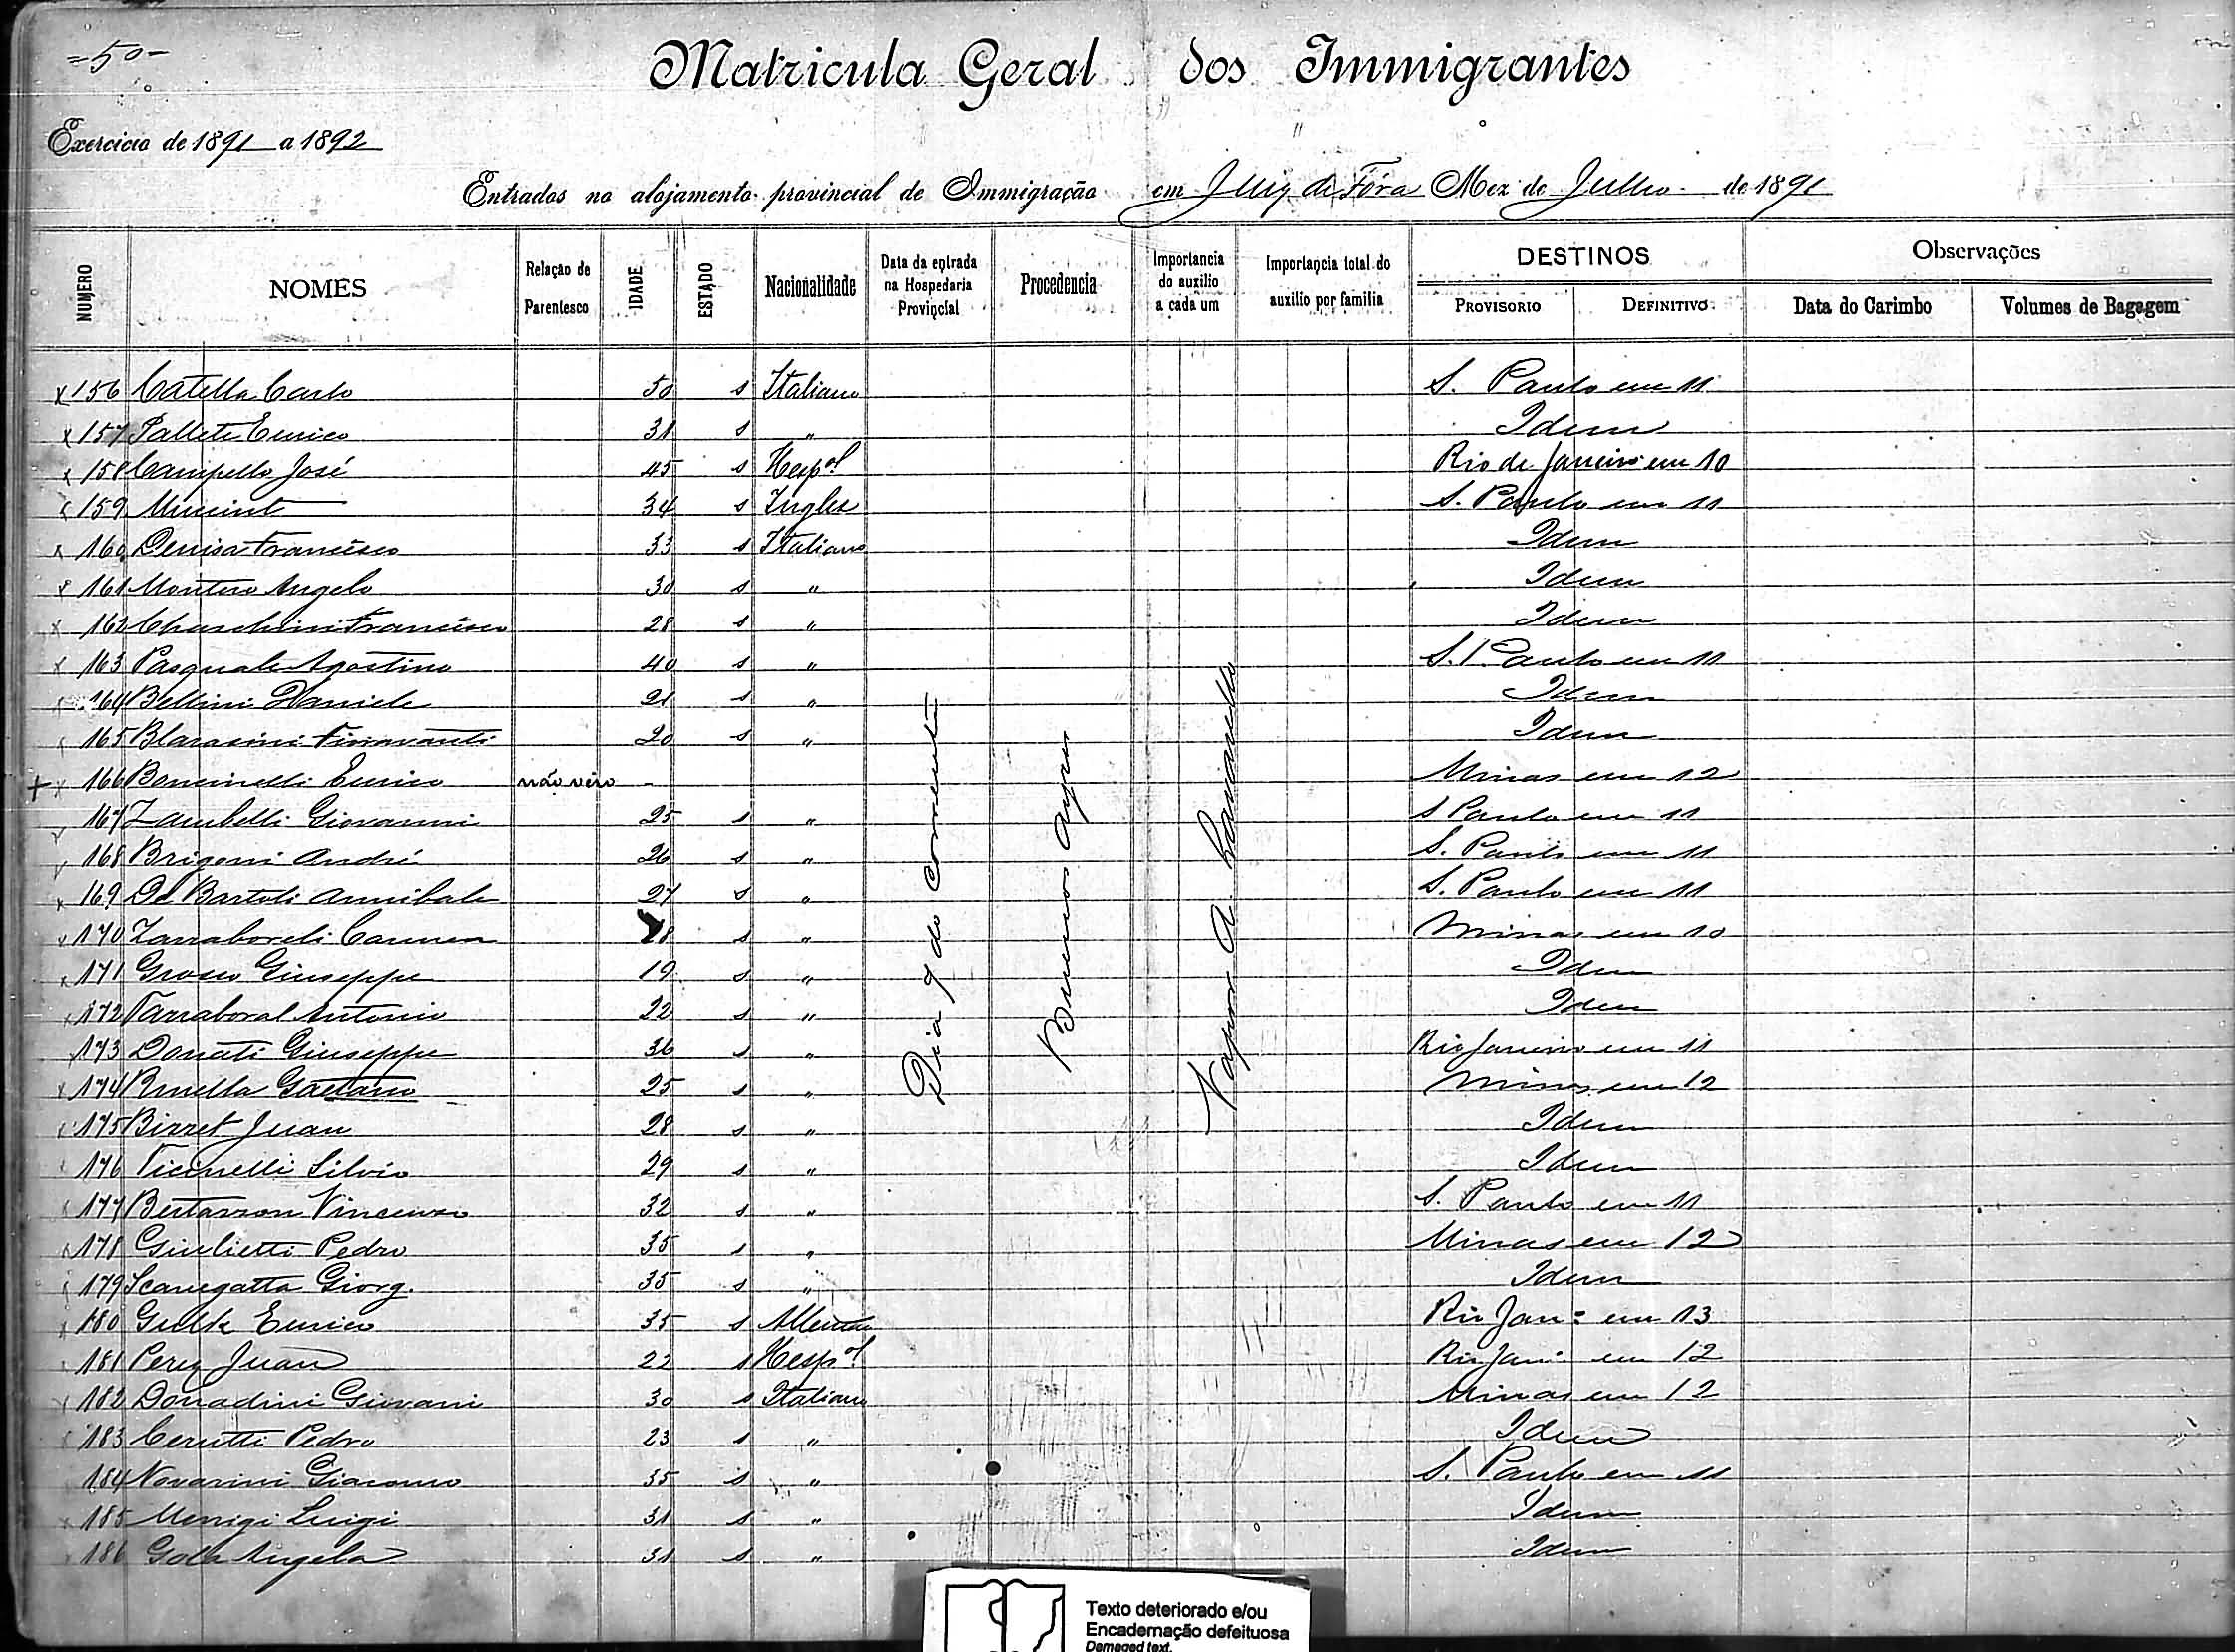 =50-
Matricula Geral dos Immigrantes
Exercicio de 1891 a 1892
Entrados no alojamento provincial de Immigração em Juiz de Fóra Mez de Julho de 1891
NUMERO NOMES Relação de Parentesco IDADE ESTADO Nacionalidade Data da entrada na Hospedaria Provincial Procedencia Importancia do auxilio a cada um Importancia total do auxilio por familia DESTINOS PROVISORIO DEFINITIVO Observações Data do Carimbo Volumes de Bagagem
x 156 Catella Carlo 50 s Italiano S. Paulo em 11
x 157 Pallete Eurico 31 s " Idem
x 158 Campello José 45 s Hespol Rio de Janeiro em 10
x 159 34 s Ingles S. Paulo em 11
x 160 Denisa Francisco 33 s Italiano Idem
x 161 Montero Angelo 30 s " Idem
x 162 Chaschini Francisco 28 s " Idem
x 163 Pasquale Agostino 40 s " S. Paulo em 11
x 164 Bellini Daniele 21 s " Idem
x 165 Blarasini Fioravanti 20 s " Idem
+ x 166 Boncinelli Eurico não veio - Minas em 12
x 167 Zambelli Giovanni 25 s " S Paulo em 11
x 168 Brigoni André 26 s " S. Paulo em 11
x 169 De Bartoli Annibale 27 s " S. Paulo em 11
x 170 Zarraboreli Carmen 28 s " Minas em 10
x 171 Grosso Giuseppe 19 s " Idem
x 172 Tarraboral Antonio 22 s " Idem
x 173 Donati Giuseppe 36 s " Rio Janeiro em 11
x 174 Brnella Gaetano 25 s " Minas em 12
x 175 Bizzet Juan 28 s " Idem
x 176 Ticinelli Silvio 29 s " Idem
x 177 Bertarron Vincenzo 32 s " S. Paulo em 11
x 178 Giulietti Pedro 35 s " Minas em 12
x 179 Scanegatta Giorg. 35 s " Idem
x 180 Gulk Eurico 35 s Allemão Rio Jano em 13
x 181 Perez Juan 22 s Hespol Rio Jano em 12
x 182 Donadini Giovani 30 s Italiano Minas em 12
x 183 Cerutti Pedro 23 s " Idem
184 Novarini Giacomo 35 s " S. Paulo em 11
x 185 Menigi Luigi 31 s " Idem
x 186 Gola Angela 31 s " Idem
Dia 7 do Corrente
Buenos Ayres
Vapor A.
Texto deteriorado e/ou
Encadernação defeituosa
Demeged text.